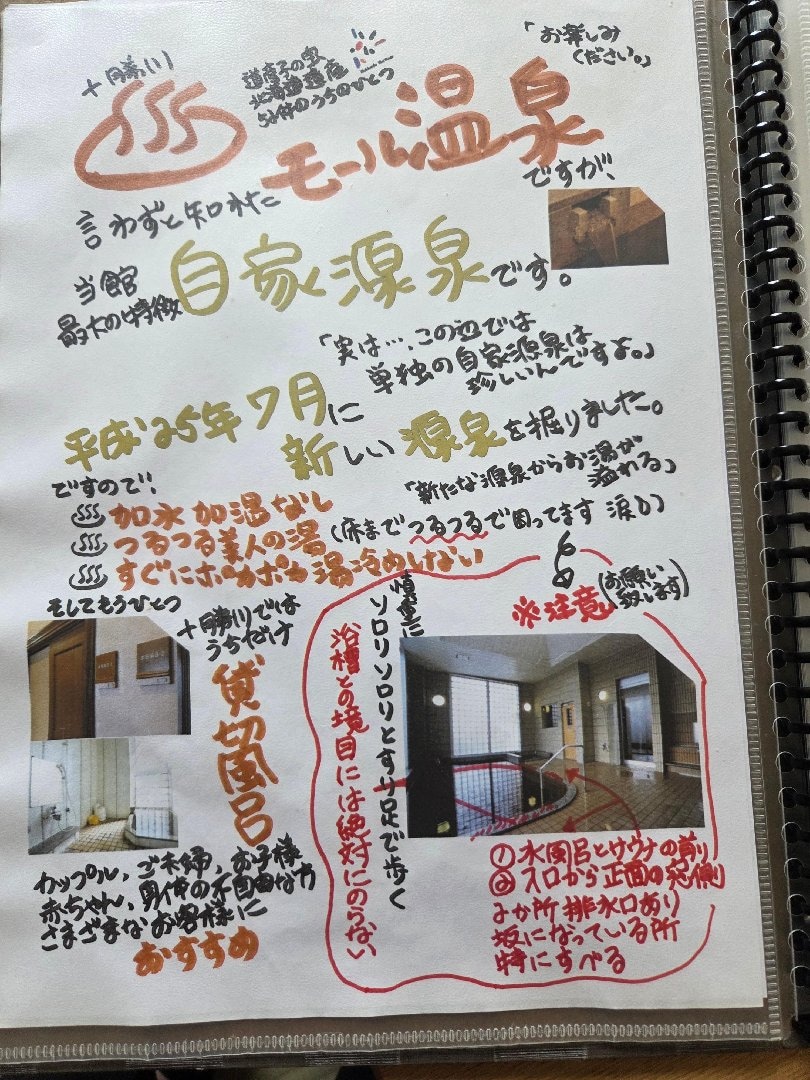 十勝川
道産子の宝
北海道遺産
54件のうちのひとつ
「お楽しみ
ください。」
モール温泉
言わずと知れた
ですが、
当館
最大の特徴
自家源泉です。
「実は…、この辺では
単独の自家源泉は
珍しいんですよ。」
平成25年7月に
新しい源泉を掘りました。
ですので!
「新たな源泉からお湯が
溢れる」
加水加温なし
つるつる美人の湯
(床までつるつるで困ってます 涙)
すぐにポカポカ湯冷めしない
そしてもうひとつ
十勝川では
うちだけ
貸切風呂
カップル、ご夫婦、お子様
赤ちゃん、身体の不自由な方
さまざまなお客様に
おすすめ
※注意
(お願い
致します)
慎重に
ソロリソロリとすり足で歩く
浴槽との境目には絶対にのらない
①水風呂とサウナの前
②入口から正面の窓側
2か所排水口あり
坂になっている所
特にすべる